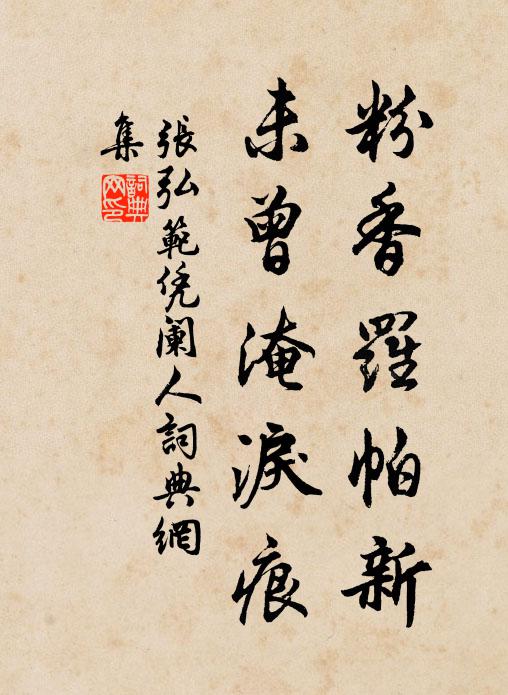 粉香羅帕新
未曾淹淚痕
張弘範凭阑人詞典網
集
詞典
网印